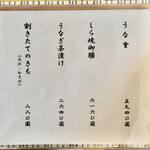 うな重 五、九四〇圓
しら焼御膳 六、一六〇圓
うなぎ茶漬け 二、六四〇圓
割きたてのきも 八八〇圓
(たれ・わさび)